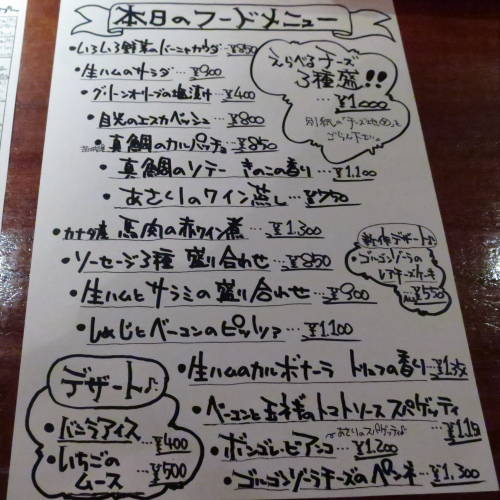 本日のフードメニュー
・いろいろ野菜のバーニャカウダ…¥850
・生ハムのサラダ…¥900
・グリーンオリーブの塩漬け…¥400
・目光のエスカベッシュ…¥800
真鯛のカルパッチョ…¥850
・真鯛のソテー きのこの香り…¥1.100
・あさりのワイン蒸し…¥750
・カナダ産 馬肉の赤ワイン煮…¥1.300
・ソーセージ3種 盛り合わせ…¥850
・生ハムとサラミの盛り合わせ…¥900
・しめじとベーコンのピッツァ…¥1.100
・生ハムのカルボナーラ トリュフの香り…
・ベーコンと玉ねぎのトマトソース スパゲッティ
あさりのスパゲッティ
・ボンゴレ・ビアンコ…¥1.200
・ゴルゴンゾーラチーズのペンネ…¥1.300
えらべるチーズ
3種盛!!
…¥1000
別紙の“チーズ
ごらん下さい。
新作デザート♪
ゴルゴンゾーラの
レアチーズケーキ
¥550
デザート♪
・バニラアイス
…¥400
・いちごの
ムース…¥500